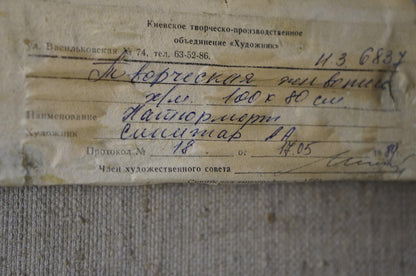 Киевское творческо-производственное
объединение «Художник»
ул. Васильковская № 74, тел. 63-52-86. НЗ 6837
Творческая живопись
х/м. 100 х 80 см
Наименование Натюрморт
Художник
Протокол № 18 от 17.05
Член художественного совета